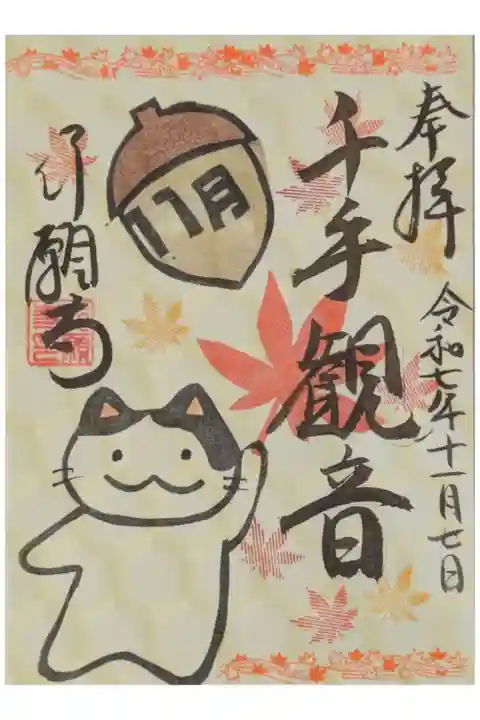 奉拝
令和七年十一月七日
千手観音
11月
行願寺